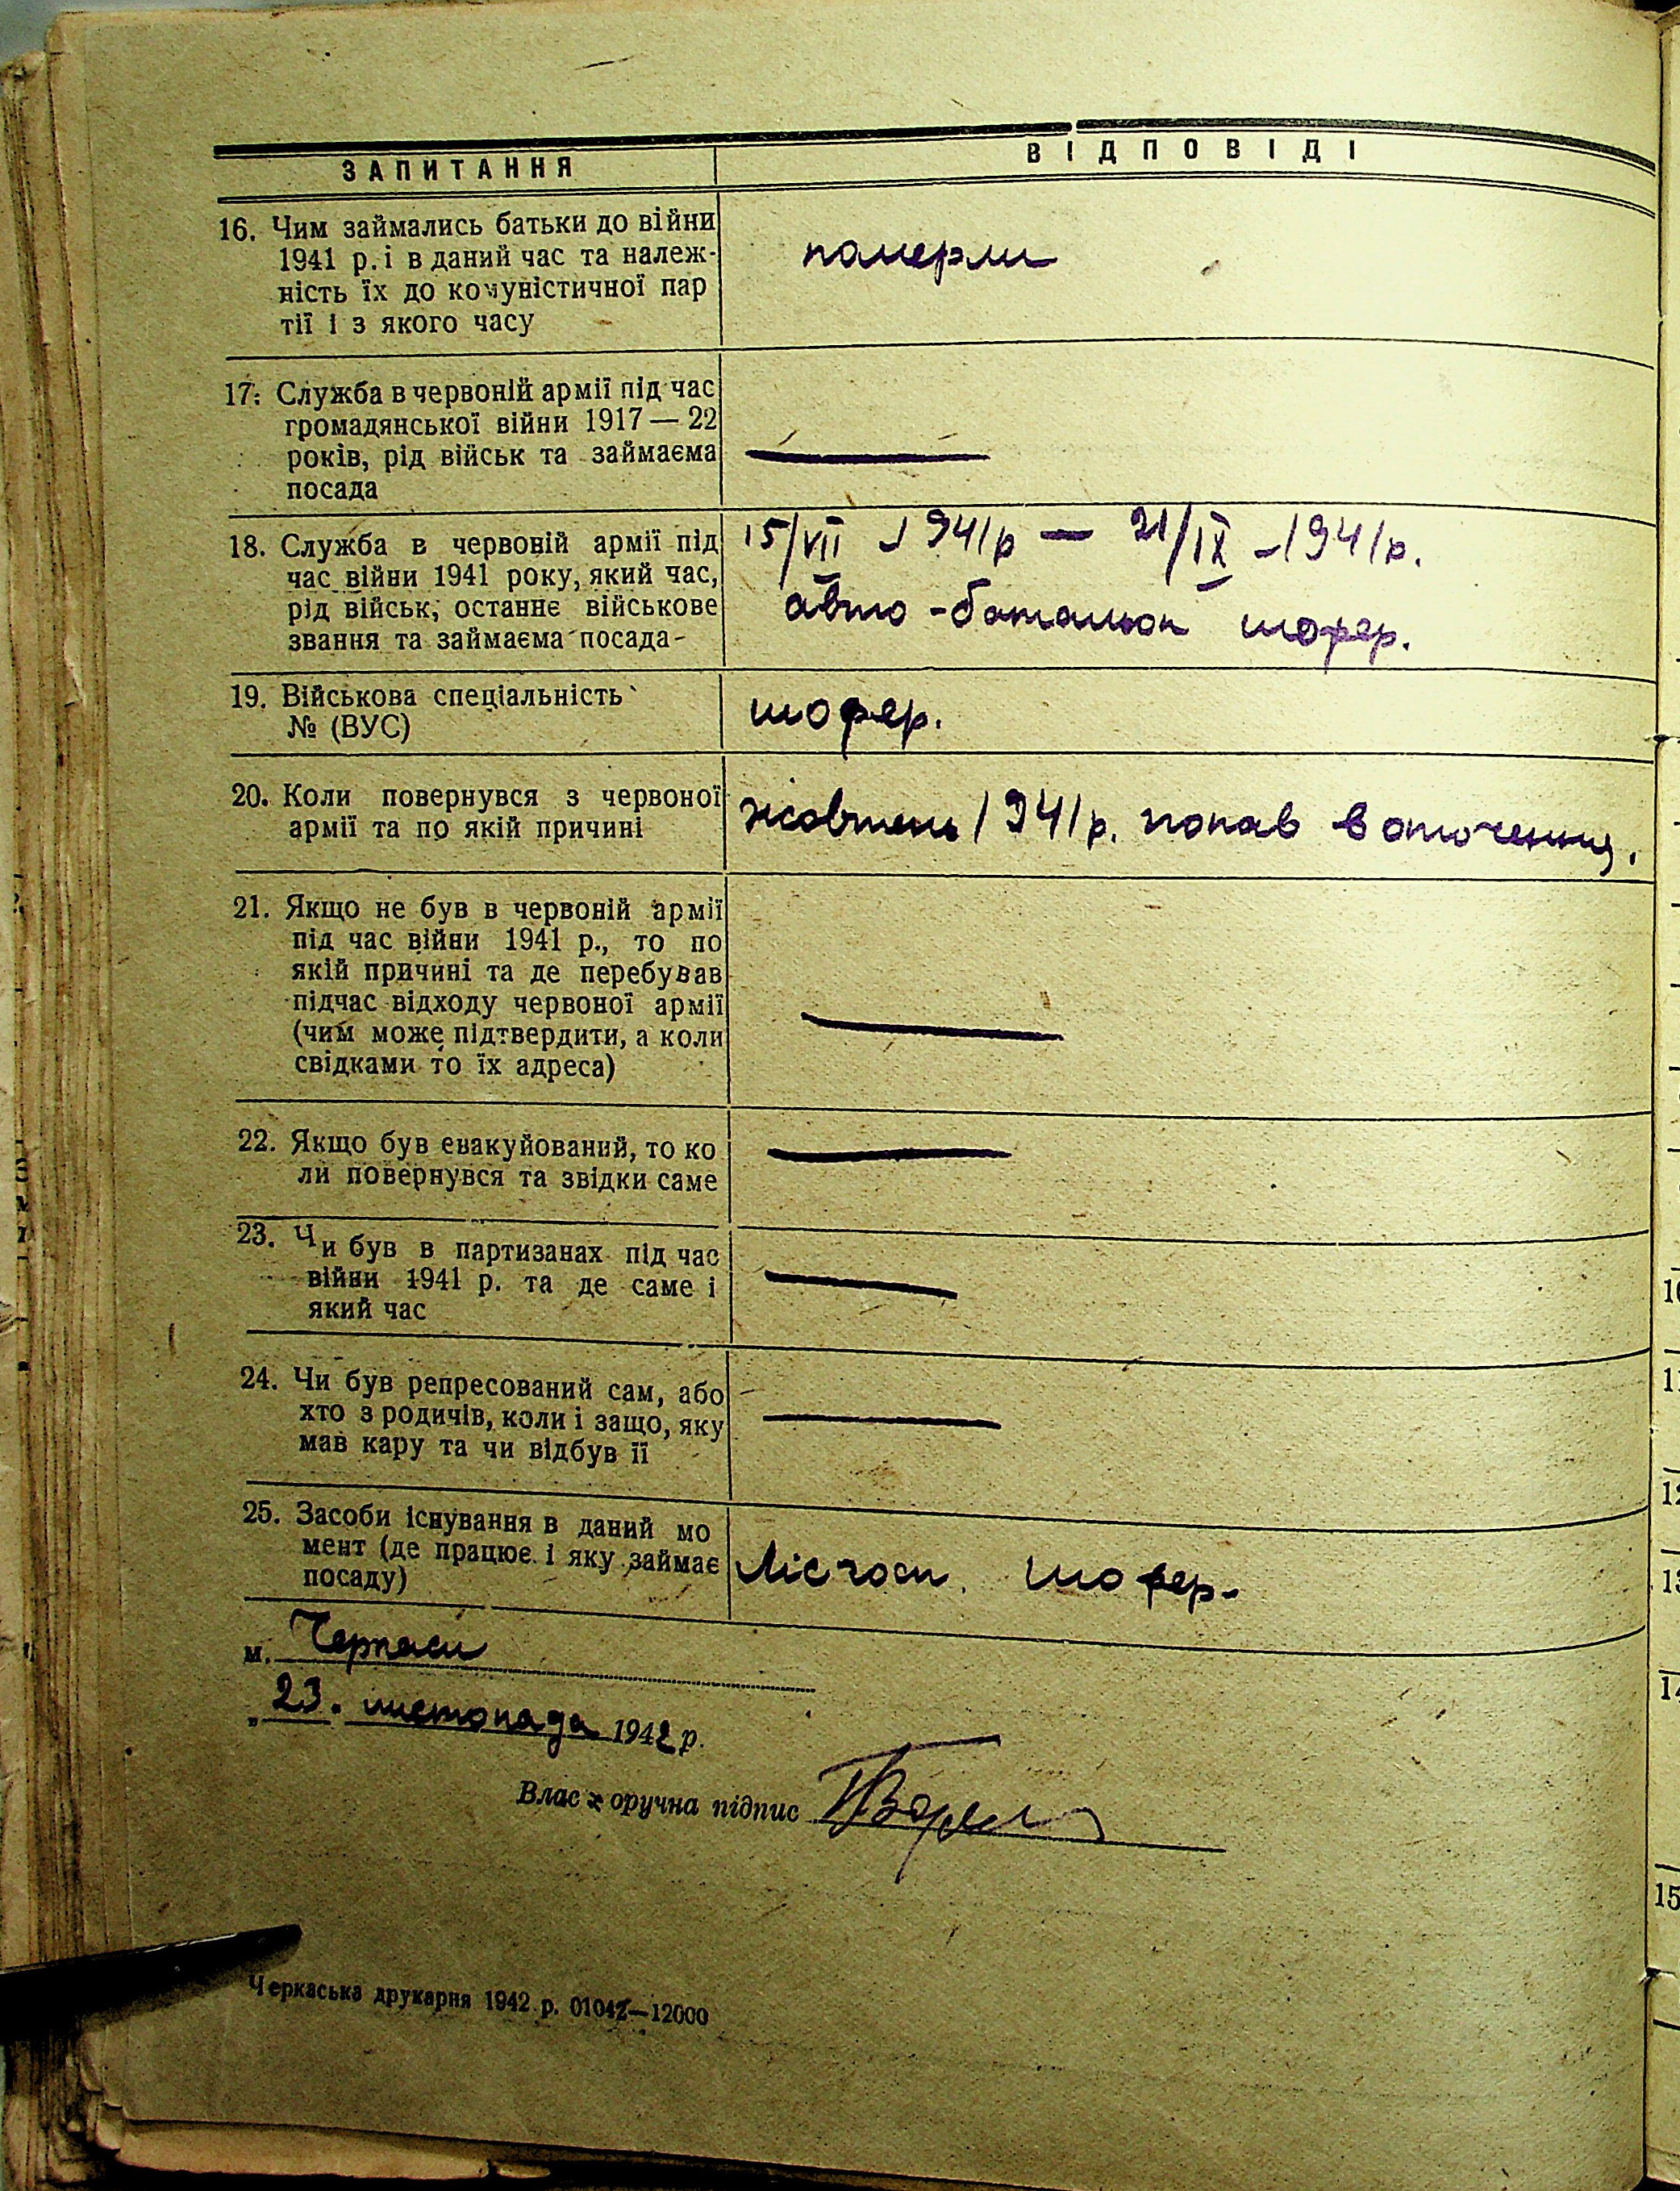 ЗАПИТАННЯ
ВІДПОВІДІ
16. Чим займались батьки до війни
1941 р. і в даний час та належ-
ність їх до комуністичної пар
тії і з якого часу
померли
17. Служба в червоній армії під час
громадянської війни 1917 — 22
років, рід військ та займаєма
посада
18. Служба в червоній армії під
час війни 1941 року, який час,
рід військ, останнє військове
звання та займаєма посада
15/VII - 1941р — 21/IX - 1941р.
авто - батальон шофер.
19. Військова спеціальність
№ (ВУС)
шофер.
20. Коли повернувся з червоної
армії та по якій причині
жовтень 1941р. попав в оточення.
21. Якщо не був в червоній армії
під час війни 1941 р., то по
якій причині та де перебував
підчас відходу червоної армії
(чим може підтвердити, а коли
свідками то їх адреса)
22. Якщо був евакуйований, то ко
ли повернувся та звідки саме
23. Чи був в партизанах під час
війни 1941 р. та де саме і
який час
24. Чи був репресований сам, або
хто з родичів, коли і защо, яку
мав кару та чи відбув її
25. Засоби існування в даний мо
мент (де працює і яку займає
посаду)
Лісгосп. шофер-
м. Черкаси
„23. листопада 1942 р.
Власноручна підпис
Черкаська друкарня 1942 р. 01042—12000
10
11
12
13
14
15